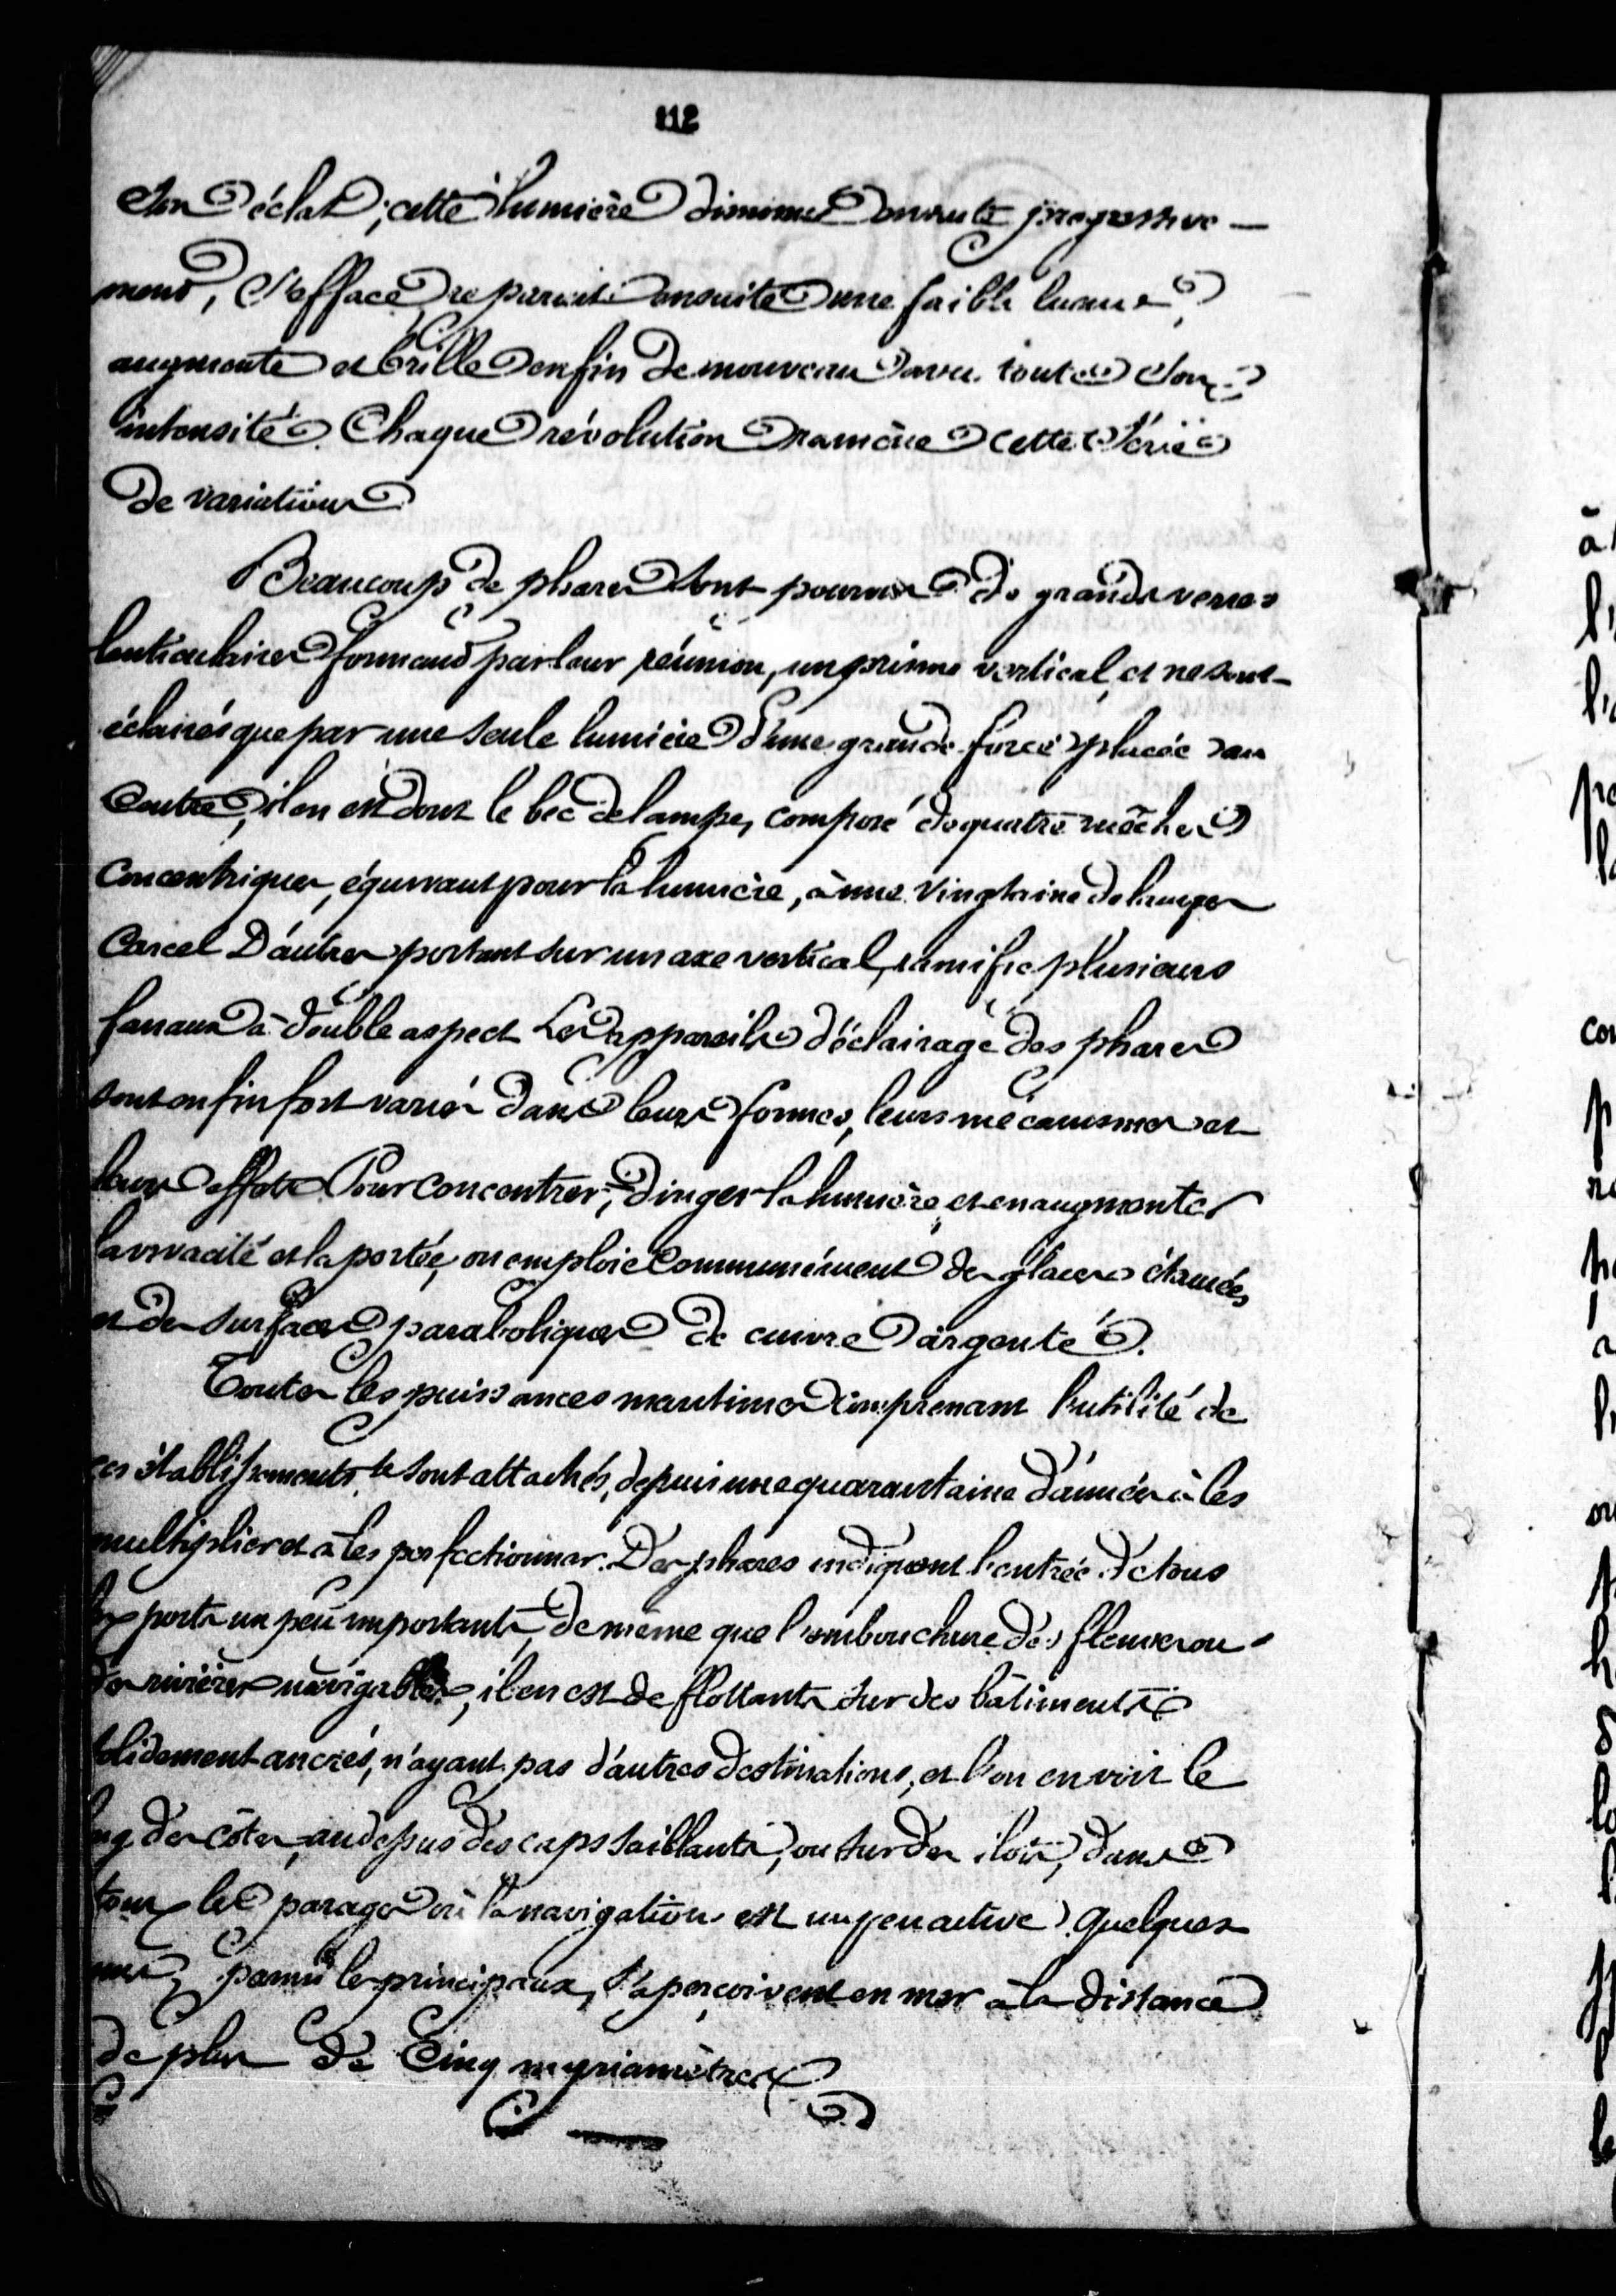 112
son éclat; cette lumière diminue ensuite progressive-
ment, s'efface, reparait ensuite une faible lueur,
augmente et brille enfin de nouveau avec toute son
intensité. Chaque révolution ramène cette série
de variations
Beaucoup de phares sont pourvus de grands verres
lenticulaires formant par leur réunion, un prisme vertical, et ne sont
éclairés que par une seule lumière d'une grande force placée au
Centre, il en est dont le bec de lampe, composé de quatre mèches
Concentriques, équivaut pour la lumière, à une vingtaine de lampes
Carcel D'autres portent sur un axe vertical, ramifie plusieurs
fanaux à double aspect Les appareils d'éclairage des phares
sont enfin fort variés dans leurs formes, leurs mécanismes et
leurs effets Pour concentrer, diriger la lumière et en augmenter
la vivacité et la portée, on emploie Communément des glaces étamées
et des surfaces paraboliques de cuivre argenté.
Toutes les puissances maritimes comprenant l'utilité de
ces établissements, se sont attachés, depuis une quarantaine d'années à les
multiplier et à les perfectionner. Des phares indiquent l'entrée de tous
les ports un peu importants, de même que l'embouchure des fleuves ou
des rivières navigables, il en est de flottants sur des bâtiments
solidement ancrés, n'ayant pas d'autres destinations, et l'on en voit le
long des côtes, au dessus des caps saillants, ou sur des ilots, dans
tous les parages où la navigation est un peu active Quelques
uns, parmi les principaux, s'aperçoivent en mer à la distance
de plus de Cinq myriamètres